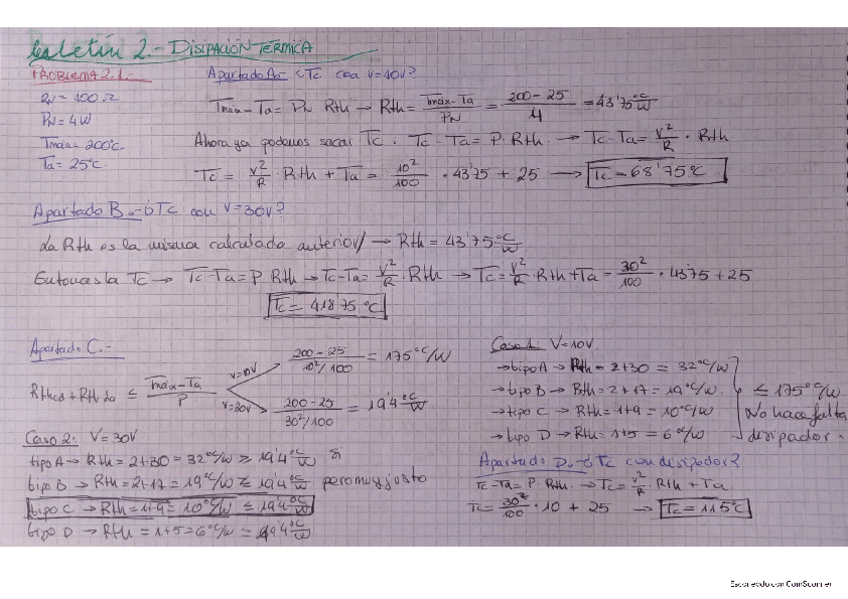 Boletín 2.- DISIPACIÓN TÉRMICA
PROBLEMA 2.1.-
RN = 100 Ω
PN = 4W
Tmáx = 200°C
Ta = 25°C
Apartado A.- ¿Tc con V=10V?
Tmáx - Ta = PN · Rth → Rth = (Tmáx - Ta)/PN = (200 - 25)/4 = 43'75 °C/W
Ahora ya podemos sacar Tc : Tc - Ta = P · Rth → Tc - Ta = V²/R · Rth
Tc = V²/R · Rth + Ta = 10²/100 · 43'75 + 25 → Tc = 68'75°C
Apartado B.- ¿Tc con V=30V?
La Rth es la misma calculada anterior/ → Rth = 43'75 °C/W
Entonces la Tc → Tc - Ta = P · Rth → Tc - Ta = V²/R · Rth → Tc = V²/R · Rth + Ta = 30²/100 · 43'75 + 25
Tc = 418'75 °C
Apartado C.-
Rthcd + Rthda ≤ (Tmáx - Ta)/P
V=10V (200 - 25)/(10²/100) = 175 °C/W
V=30V (200 - 25)/(30²/100) = 19'4 °C/W
Caso 1: V=10V
→ tipo A → Rth = 2+30 = 32 °C/W
→ tipo B → Rth = 2+17 = 19 °C/W
→ tipo C → Rth = 1+9 = 10 °C/W
→ tipo D → Rth = 1+5 = 6 °C/W
≤ 175 °C/W
No hace falta
disipador.
Caso 2: V=30V
tipo A → Rth = 2+30 = 32 °C/W ≥ 19'4 °C/W si
tipo B → Rth = 2+17 = 19 °C/W ≥ 19'4 °C/W pero muy justo
tipo C → Rth = 1+9 = 10 °C/W ≤ 19'4 °C/W
tipo D → Rth = 1+5 = 6 °C/W = 19'4 °C/W
Apartado D.- ¿Tc con disipador?
Tc - Ta = P · Rth → Tc = V²/R · Rth + Ta
Tc = 30²/100 · 10 + 25 → Tc = 115°C
Escaneado con CamScanner